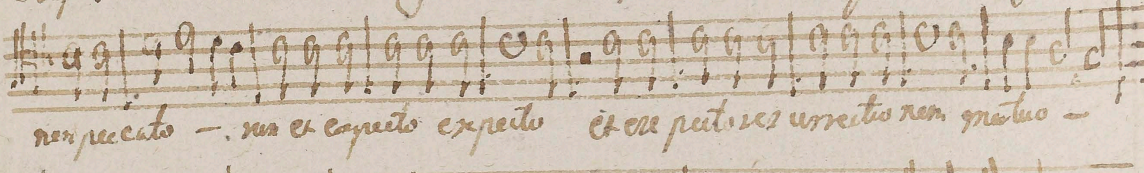 nen peccato - rum et expecto expecto et exe pecto res urrectio nem mortuo -